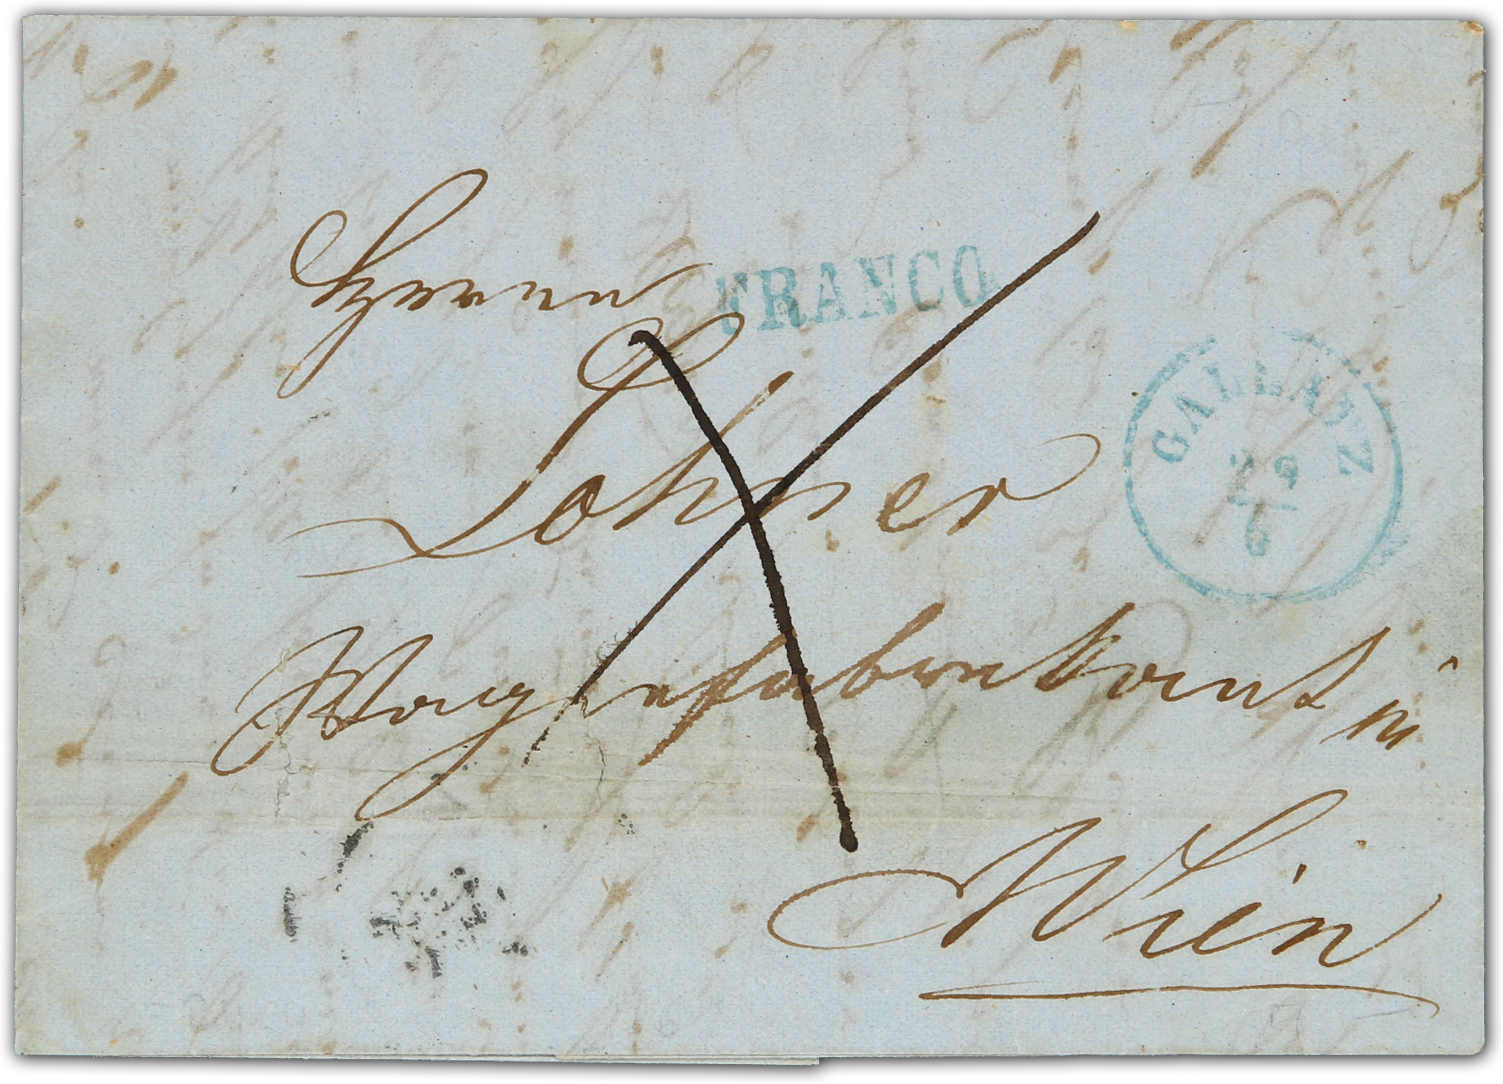 Herrn
FRANCO
Lohner
GALLATZ
29
6
Wagenfabrikant in
Wien